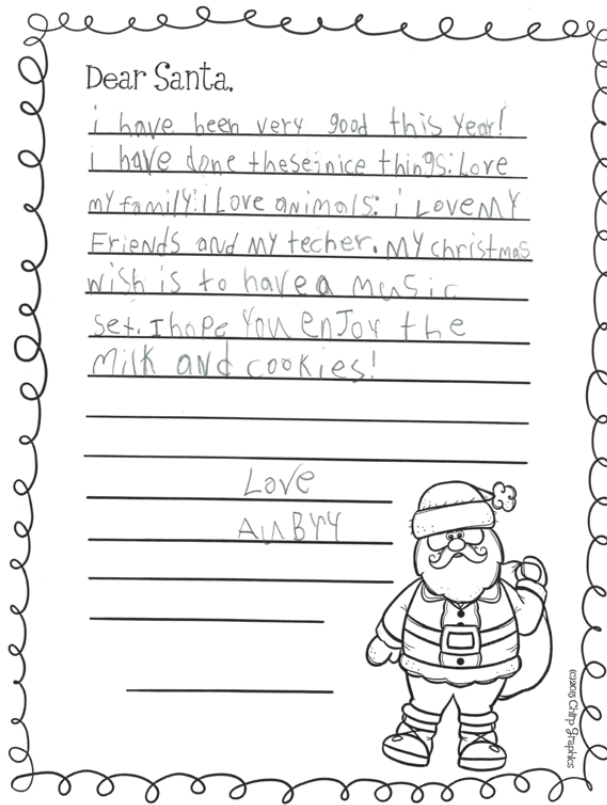 Dear Santa,
i have been very good this year!
i have done these nice things: Love
my family: i Love animals: i Love MY
Friends and MY techer. MY christmas
wish is to have a music
set. I hope You enJoy the
Milk and cookies!
Love
(c)2015 Chirp Graphics